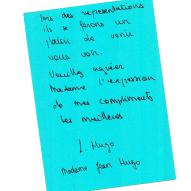 lors des representations
ils se ferons un
plaisir de venu
vous voir.
Veuillez agréer
Madame l'expression
de mes compliments
les meilleurs
L. Hugo
Madame Jean Hugo